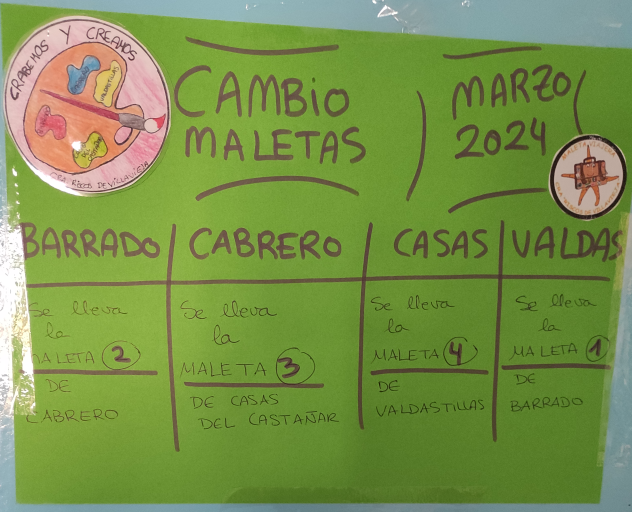 CRABEMOS Y CREAMOS
CAMBIO
MALETAS
MARZO
2024
CRA RISCOS DE VILLAVIEJA
BARRADO
CABRERO
CASAS
VALDAS
Se lleva
la
MALETA 2
DE
CABRERO
Se lleva
la
MALETA 3
DE CASAS
DEL CASTAÑAR
Se lleva
la
MALETA 4
DE
VALDASTILLAS
Se lleva
la
MALETA 1
DE
BARRADO